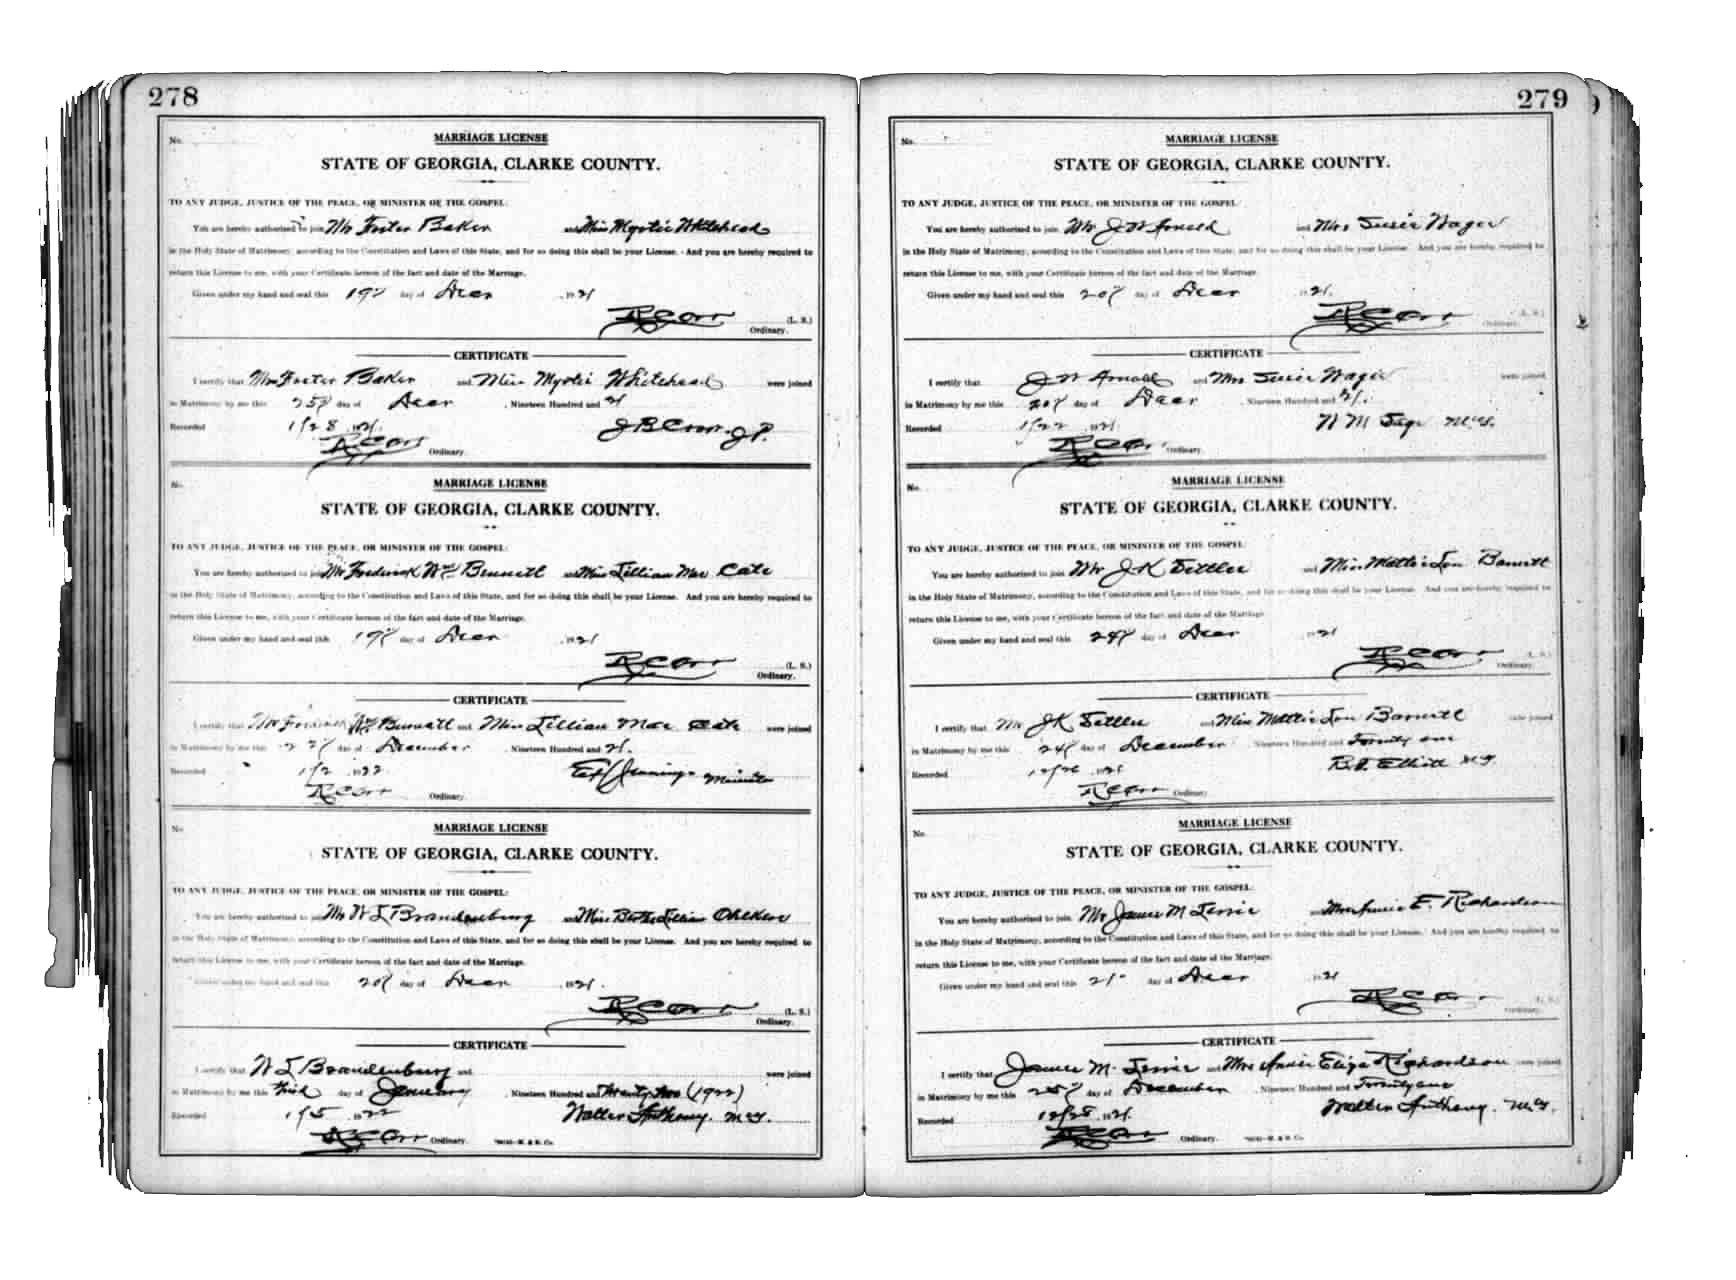 278
No.
MARRIAGE LICENSE
STATE OF GEORGIA, CLARKE COUNTY.
TO ANY JUDGE, JUSTICE OF THE PEACE, OR MINISTER OF THE GOSPEL:
You are hereby authorized to join Mr Foster Baker and Miss Myrtie Whitehead
in the Holy State of Matrimony, according to the Constitution and Laws of this State, and for so doing this shall be your License. And you are hereby required to
return this License to me, with your Certificate hereon of the fact and date of the Marriage.
Given under my hand and seal this 19th day of Decr 1921
R C Orr (L. S.)
Ordinary.
CERTIFICATE
I certify that Mr Foster Baker and Miss Myrtie Whitehead were joined
in Matrimony by me this 25th day of Decr , Nineteen Hundred and 21
Recorded 1/28 1921. J P.
R C Orr Ordinary.
No.
MARRIAGE LICENSE
STATE OF GEORGIA, CLARKE COUNTY.
TO ANY JUDGE, JUSTICE OF THE PEACE, OR MINISTER OF THE GOSPEL:
You are hereby authorized to join Mr Frederick Wm Bennett and Miss Lillian Mae Cate
in the Holy State of Matrimony, according to the Constitution and Laws of this State, and for so doing this shall be your License. And you are hereby required to
return this License to me, with your Certificate hereon of the fact and date of the Marriage.
Given under my hand and seal this 19th day of Decr 1921
R C Orr (L. S.)
Ordinary.
CERTIFICATE
I certify that Mr Frederick Wm Bennett and Miss Lillian Mae Cate were joined
in Matrimony by me this 22th day of December , Nineteen Hundred and 21.
Recorded 1/2 1922 Jennings Minister
R C Orr Ordinary.
No.
MARRIAGE LICENSE
STATE OF GEORGIA, CLARKE COUNTY.
TO ANY JUDGE, JUSTICE OF THE PEACE, OR MINISTER OF THE GOSPEL:
You are hereby authorized to join Mr W L Brandenburg and Miss Lillian
in the Holy State of Matrimony, according to the Constitution and Laws of this State, and for so doing this shall be your License. And you are hereby required to
return this License to me, with your Certificate hereon of the fact and date of the Marriage.
Given under my hand and seal this 20th day of Decr 1921.
R C Orr (L. S.)
Ordinary.
CERTIFICATE
I certify that W L Brandenburg and were joined
in Matrimony by me this day of January , Nineteen Hundred and Twenty two (1922)
Recorded 1/5 1922 Walter Anthony. M.G.
R C Orr Ordinary.
279
No.
MARRIAGE LICENSE
STATE OF GEORGIA, CLARKE COUNTY.
TO ANY JUDGE, JUSTICE OF THE PEACE, OR MINISTER OF THE GOSPEL:
You are hereby authorized to join Mr J W Arnold and Mrs Susie Wages
in the Holy State of Matrimony, according to the Constitution and Laws of this State, and for so doing this shall be your License. And you are hereby required to
return this License to me, with your Certificate hereon of the fact and date of the Marriage.
Given under my hand and seal this 20th day of Decr 1921.
R C Orr (L. S.)
Ordinary.
CERTIFICATE
I certify that J W Arnold and Mrs Susie Wages were joined
in Matrimony by me this 20th day of Decr , Nineteen Hundred and 21.
Recorded 1/22 1921. W M M.G.
R C Orr Ordinary.
No.
MARRIAGE LICENSE
STATE OF GEORGIA, CLARKE COUNTY.
TO ANY JUDGE, JUSTICE OF THE PEACE, OR MINISTER OF THE GOSPEL:
You are hereby authorized to join Mr J K Settler and Miss Mattie Lou Barnett
in the Holy State of Matrimony, according to the Constitution and Laws of this State, and for so doing this shall be your License. And you are hereby required to
return this License to me, with your Certificate hereon of the fact and date of the Marriage.
Given under my hand and seal this 24th day of Decr 1921
R C Orr (L. S.)
Ordinary.
CERTIFICATE
I certify that Mr J K Settler and Miss Mattie Lou Barnett were joined
in Matrimony by me this 24th day of December Nineteen Hundred and Twenty one
Recorded 12/26 1921 Elliott M G
R C Orr Ordinary.
No.
MARRIAGE LICENSE
STATE OF GEORGIA, CLARKE COUNTY.
TO ANY JUDGE, JUSTICE OF THE PEACE, OR MINISTER OF THE GOSPEL:
You are hereby authorized to join Mr James M and Mrs Annie E. Richardson
in the Holy State of Matrimony, according to the Constitution and Laws of this State, and for so doing this shall be your License. And you are hereby required to
return this License to me, with your Certificate hereon of the fact and date of the Marriage.
Given under my hand and seal this 21 day of Decr 1921
R C Orr (L. S.)
Ordinary.
CERTIFICATE
I certify that James M. and Mrs Annie Eliza Richardson were joined
in Matrimony by me this 25th day of December , Nineteen Hundred and Twenty one
Recorded 12/28 1921. Walter Anthony. M.G.
R C Orr Ordinary.